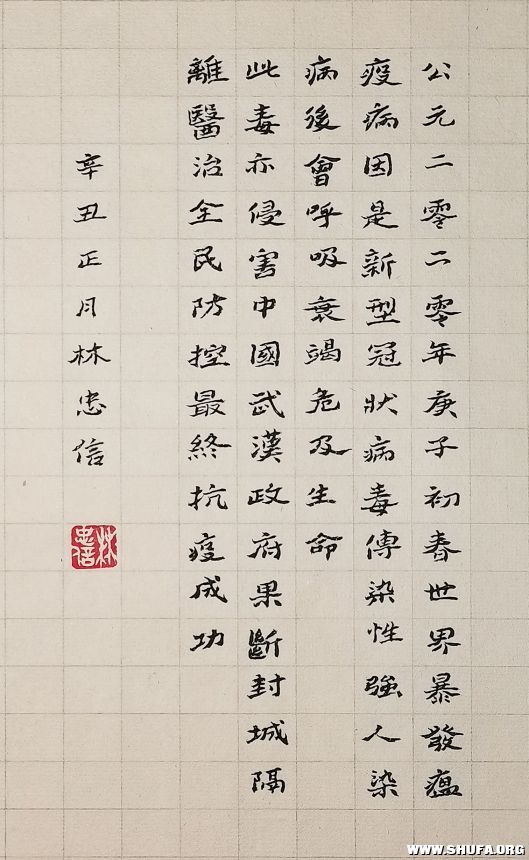 公元二零二零年庚子初春世界暴發瘟
疫病因是新型冠狀病毒傳染性強人染
病後會呼吸衰竭危及生命
此毒亦侵害中國武漢政府果斷封城隔
離醫治全民防控最終抗疫成功
辛丑正月林忠信
林忠信
WWW.SHUFA.ORG